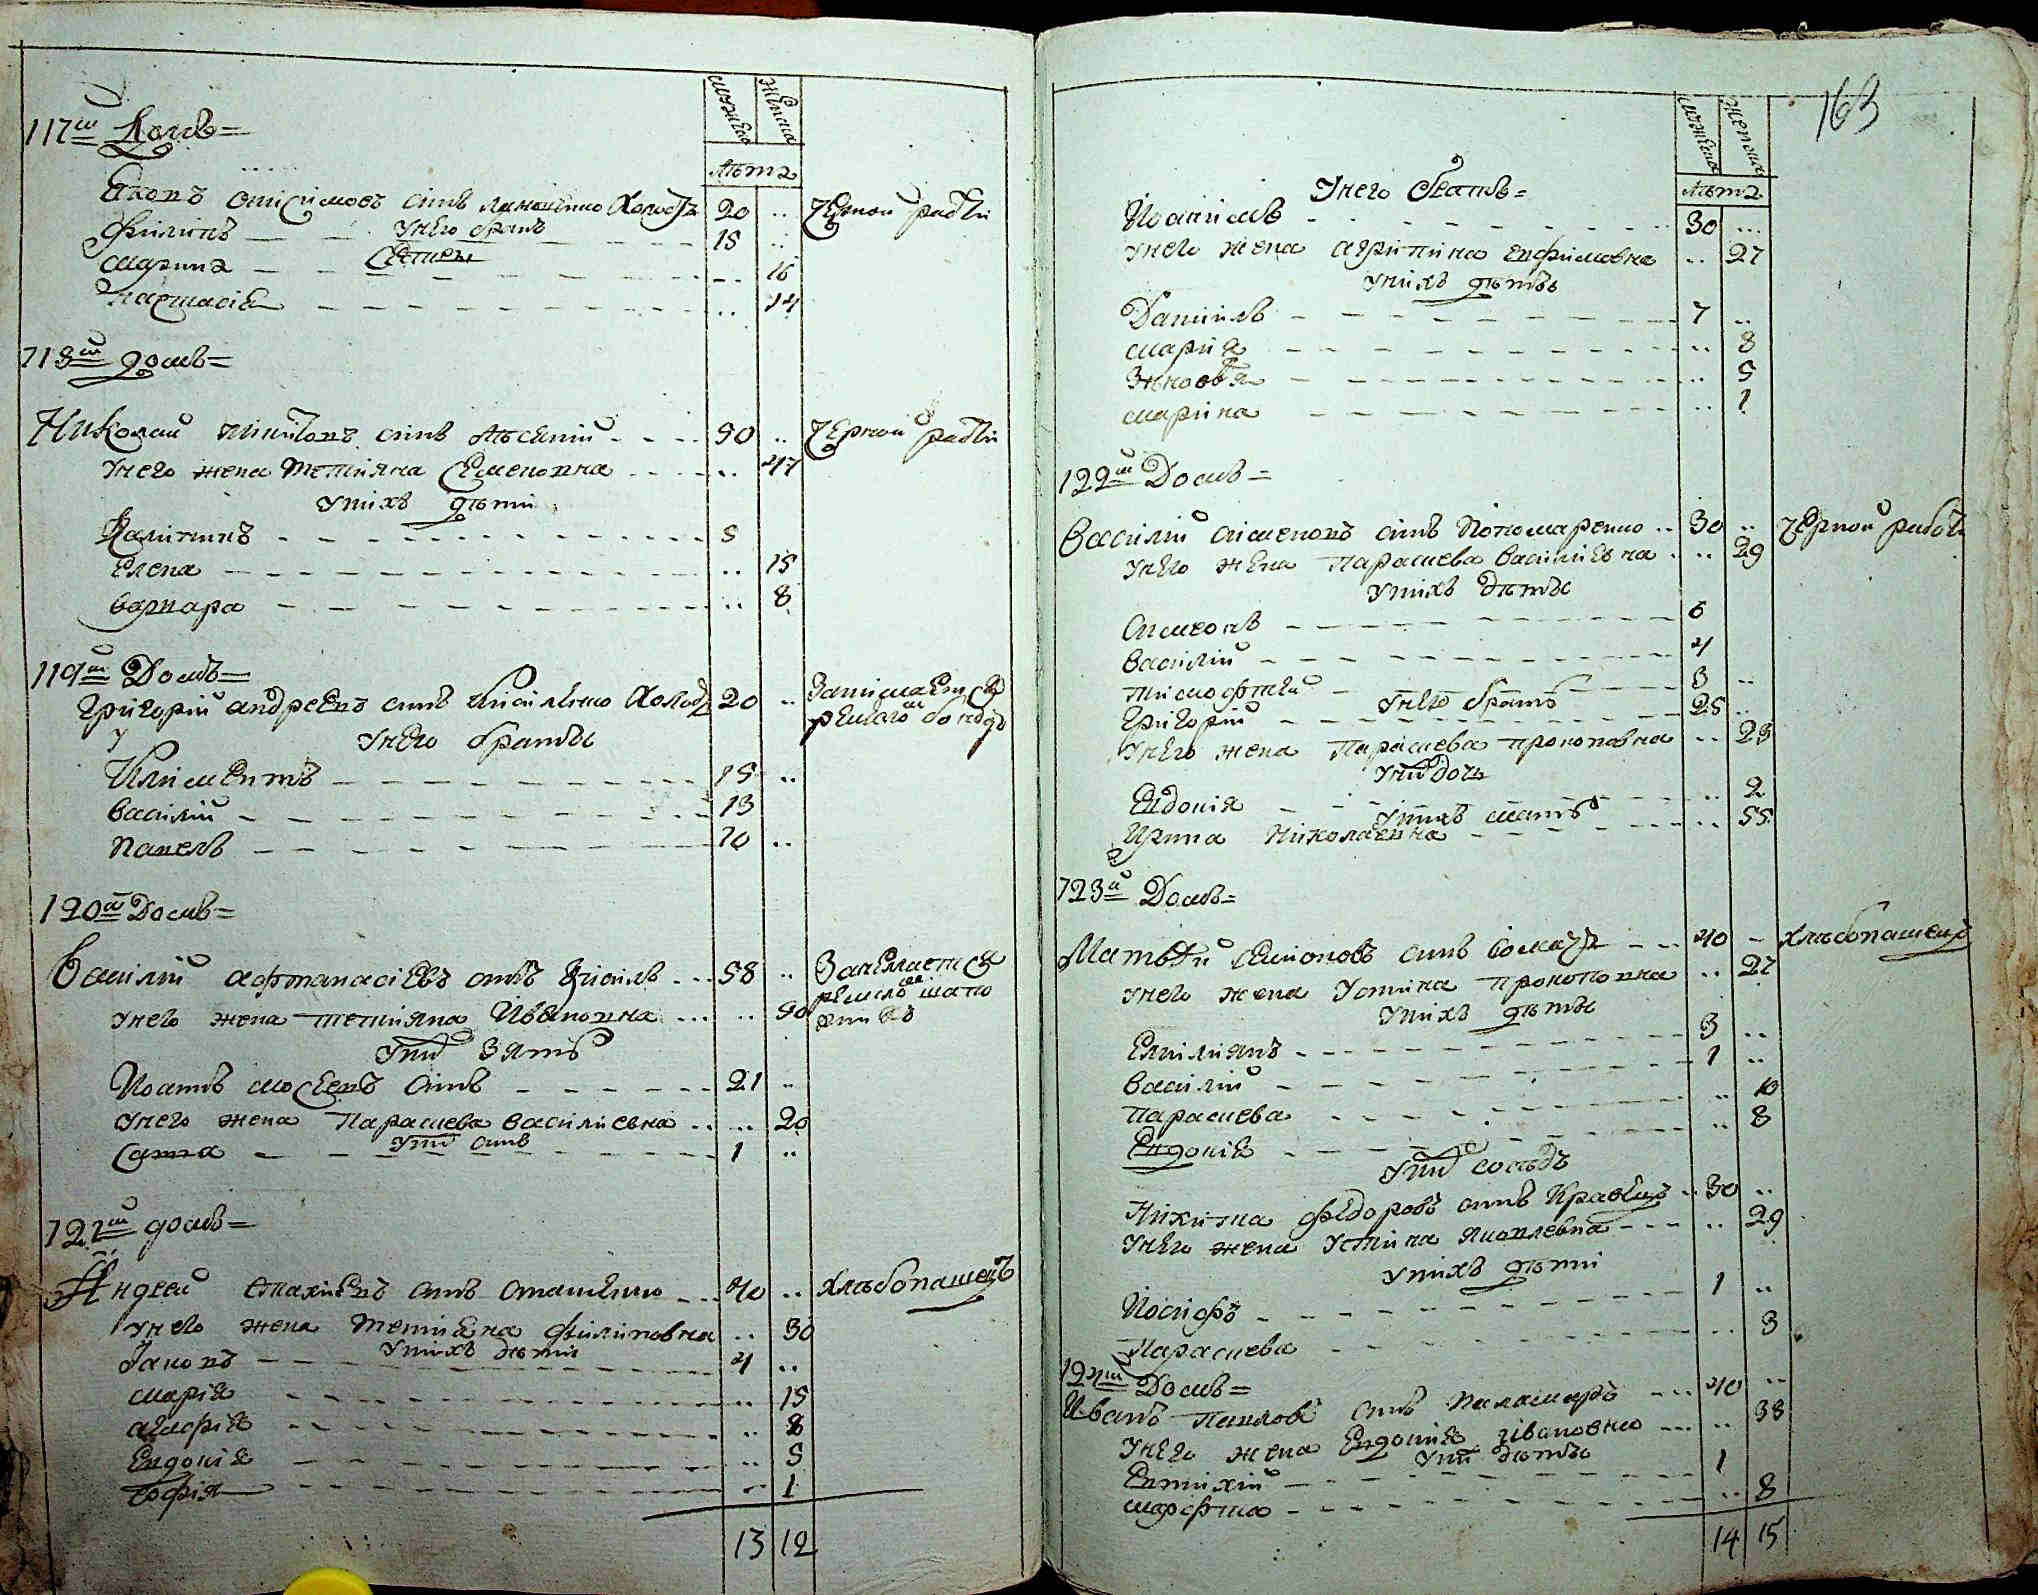 мужеска женска
лѣта
117й Домъ=
Яковъ Онисимовъ синъ холостъ 20 .. Черной работи
у него братъ
Филипъ 15 ..
Сестри
Марина .. 16
Настасія .. 14
118й домъ=
Николай синъ Лѣсяній 50 .. Черной работи
у него жена Тетіяна Семеновна .. 47
у нихъ дѣти
Калиникъ 5
Елена .. 15
Варвара .. 8
119й Домъ=
Григорій Андреевъ синъ Кисиленко Холостъ 20 .. Занимается
у него брати
Климентъ 15 ..
Василій 13
Павелъ 10 ..
120й Домъ=
Василій Афтанасіевъ синъ Кисиль 58 .. Занемается
у него жена Тетіяна Ивановна .. 50 ремисломъ
у ний Зять
Иоанъ Мосеевъ синъ 21 ..
у него жена Параскева Василиевна .. 20
у ний синъ
Сава 1 ..
121й домъ=
Андрей синъ 40 .. хлѣбопашецъ
у него жена Тетіана Филиповна .. 30
у нихъ дѣти
Іаковъ 4 ..
Марія .. 15
Агафія .. 8
Евдокія .. 5
Софія .. 1
13 12
163
мужеска женска
лѣта
у него Сватъ=
Иоакимъ 30 ...
у него жена Агрипина Евфимовна .. 27
у нихъ дѣты
Даниилъ 7 ..
Мария .. 8
Зѣновъя .. 5
Марина .. 1
122й Домъ=
Василій Симеоновъ синъ Пономаренко .. 30 .. Черной работи
у него жена Параскева Василиевна .. 29
у нихъ дѣты
Симеонъ 6
Василій 4
Тимофтей 3 ..
у него братъ
Григорій 25 ..
у него жена Параскева Прокоповна .. 23
у ний дочь
Евдокія .. 2
у нихъ мать
Ирина Николаевна .. 55
123й Домъ=
Матвѣй Семионовъ синъ 40 – хлѣбопашецъ
у него жена Устина Прокоповна .. 27
у нихъ дѣты
Емилиянъ 3 ..
Василій 1 ..
Параскева .. 10
Евдокія .. 8
у ний сосѣдъ
Никита Федоровъ синъ Кравецъ .. 30 ..
у него жена Устина Яковлевна .. 29
у нихъ дѣти
Иосифъ 1 ..
Параскева .. 3
124й Домъ=
Иванъ Павловъ синъ Паламаръ 40 ..
у него жена Евдокия Ивановна .. 38
у ний дѣты
Евтихій 1
Марфта .. 8
14 15